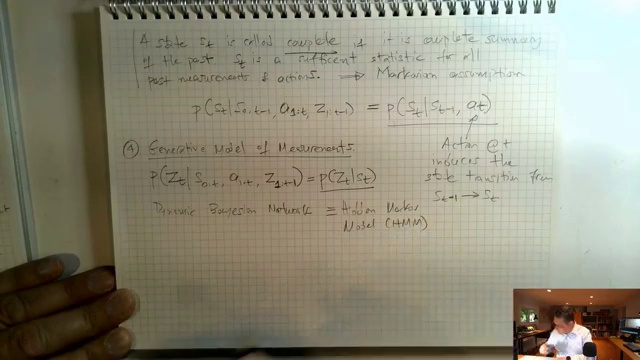 A state St is called complete if it is complete summary
of the past St is a sufficient statistic for all
past measurements & actions. ⟹ Markovian assumption
p(St|S0:t-1, a1:t, Z1:t-1) = p(St|St-1, at)
Action @t
induces the
state transition from
St-1 → St
④ Generative Model of Measurements
p(Zt|S0:t, a1:t, Z1:t-1) = p(Zt|St)
Dynamic Bayesian Network ≡ Hidden Markov
Model (HMM)